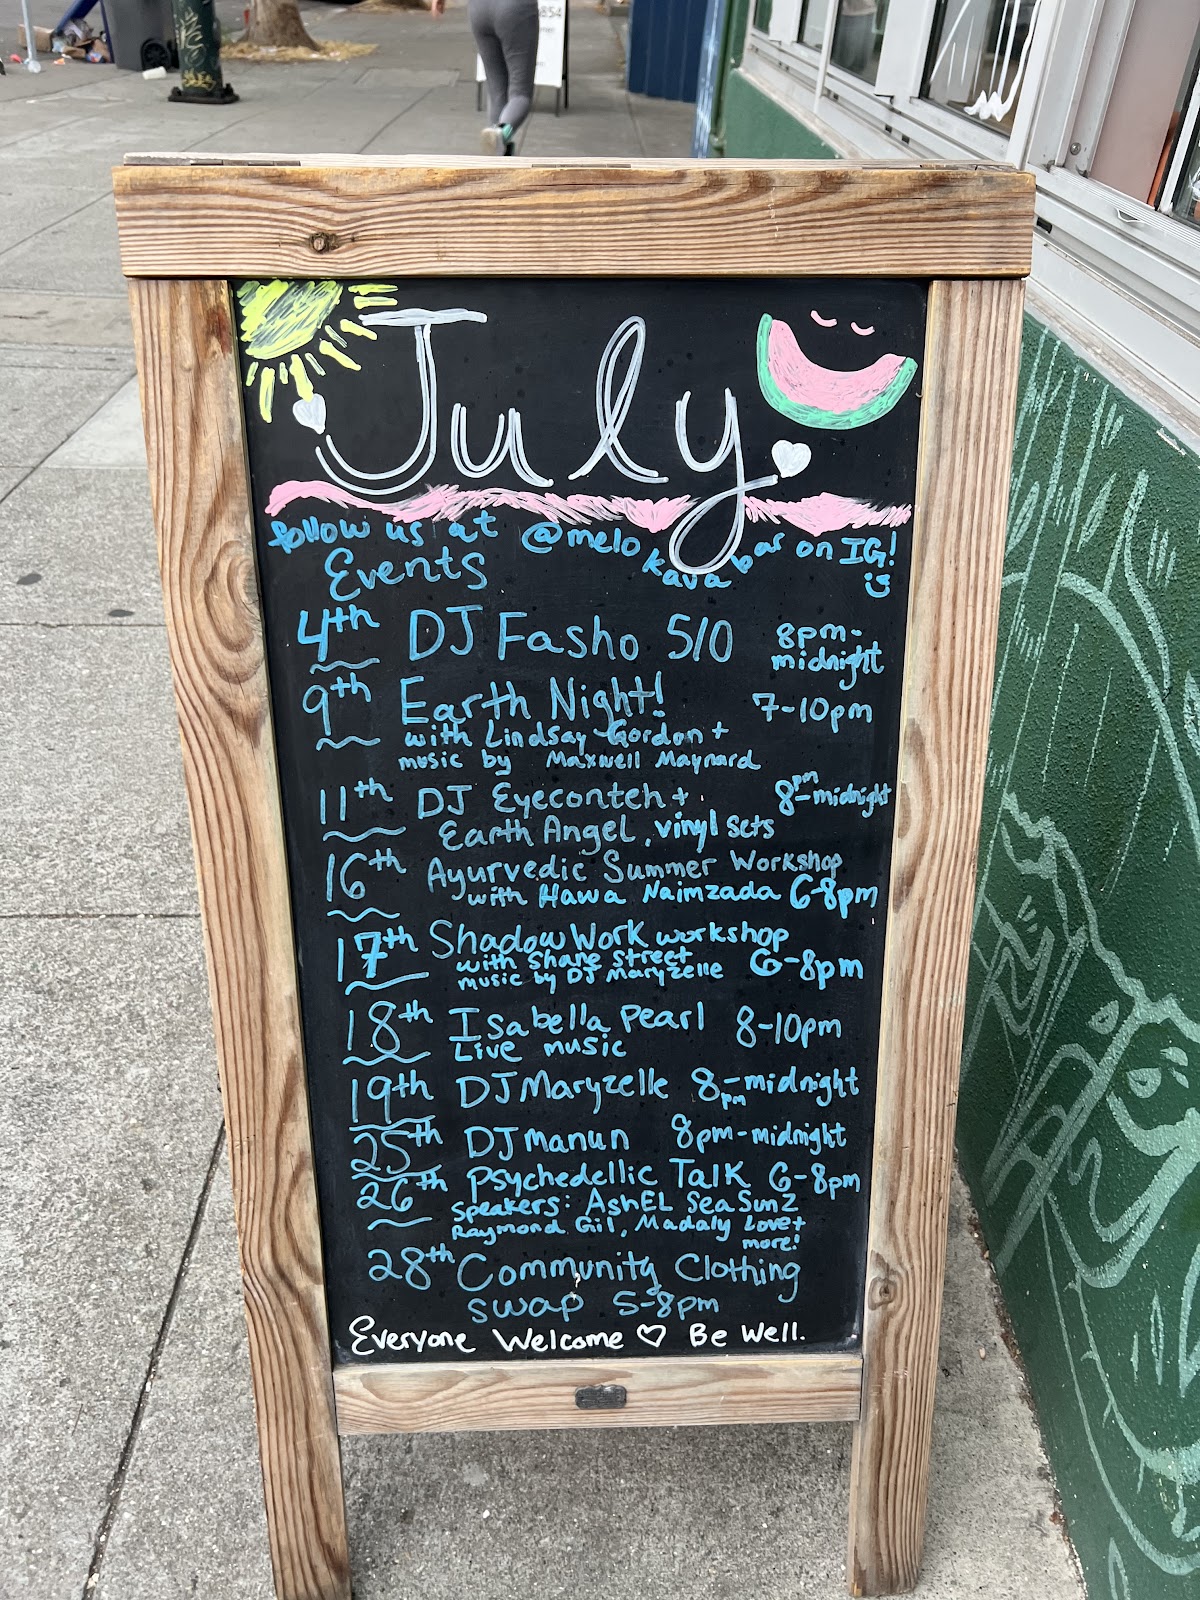 July
follow us at @melo kava bar on IG!
Events
4th DJ Fasho 5/0 8pm-midnight
9th Earth Night! 7-10pm
with Lindsay Gordon +
music by Maxwell Maynard
11th DJ Eyeconteh + 8pm-midnight
Earth Angel, vinyl sets
16th Ayurvedic Summer Workshop
with Hawa Naimzada 6-8pm
17th Shadow Work workshop
with Shane Street 6-8pm
music by DJ Maryzelle
18th Isabella Pearl 8-10pm
Live music
19th DJ Maryzelle 8pm-midnight
25th DJ manun 8pm-midnight
26th Psychedellic Talk 6-8pm
Speakers: AshEL SeaSunZ
Raymond Gil, Madaly Love +
more!
28th Community Clothing
swap 5-8pm
Everyone Welcome ♡ Be Well.